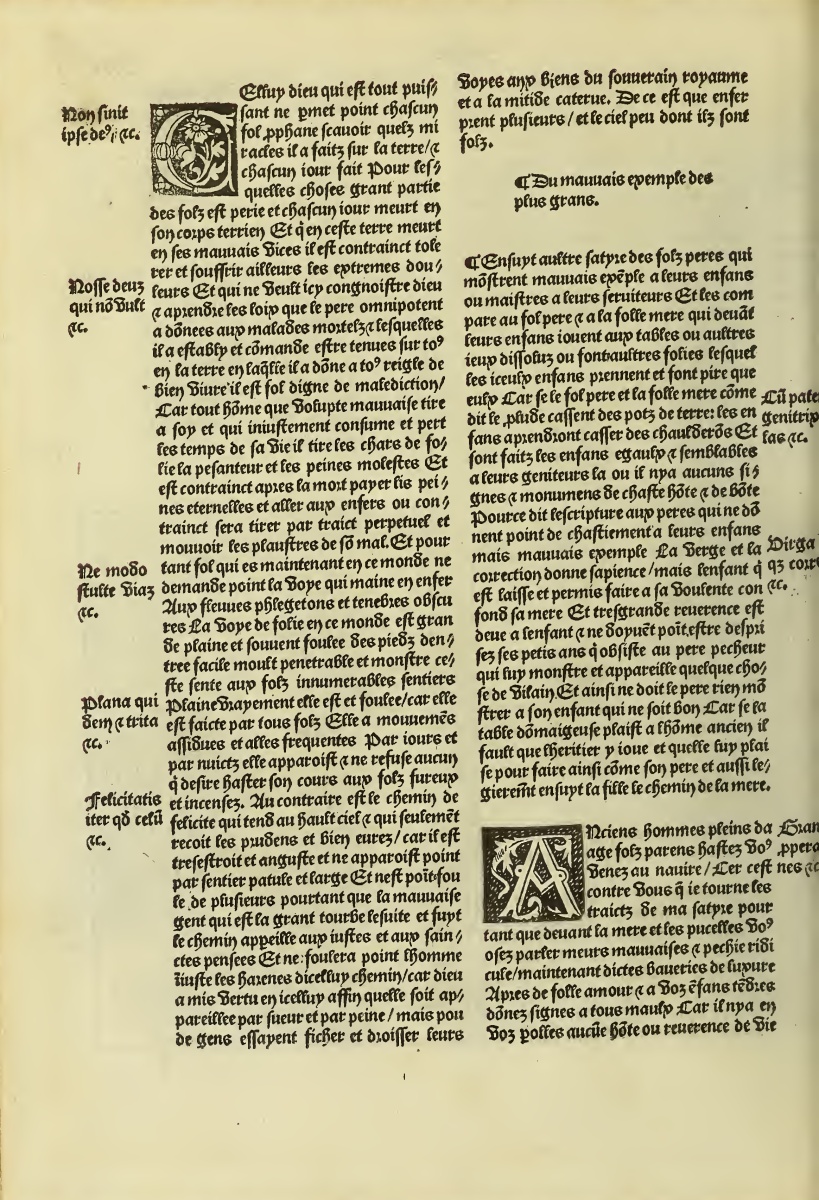 Non sinit
ipse de⁹, ⁊c.
Nosse deuz
qui nō vult
⁊c.
Ne modo
stulte vias
⁊c.
Plana qui
dem ⁊ trita
⁊c.
Felicitatis
iter qd̄ celū
⁊c.
Celluy dieu qui est tout puis⸗
sant ne ꝑmet point chascun
fol ꝓphane scauoir quelz mi
racles il a faitz sur la terre/⁊
chascun iour fait Pour les⸗
quelles choses grant partie
des folz est perie et chascun iour meurt en
son corps terrien Et q̄ en ceste terre meurt
en ses mauuais vices il est contrainct tole
rer et souffrir ailleurs les extremes dou⸗
leurs Et qui ne veult icy congnoistre dieu
⁊ aprendre les loix que le pere omnipotent
a dōnees aux malades mortelz⁊ lesquelles
il a establly et cōmande estre tenues sur to⁹
en la terre en laq̄lle il a dōne a to⁹ reigle de
bien viure il est fol digne de malediction/
Car tout hōme que volupte mauuaise tire
a soy et qui iniustement consume et pert
les temps de sa vie il tire les chars de fo⸗
lie la pesanteur et les peines molestes Et
est contrainct apres la mort payer les pei⸗
nes eternelles et aller aux enfers ou con⸗
trainct sera tirer par traict perpetuel et
mouuoir les plaustres de sō mal. Et pour
tant fol qui es maintenant en ce monde ne
demande point la voye qui maine en enfer
Aux fleuues phlegetons et tenebres obscu
res La voye de folie en ce monde est gran
de plaine et souuent foulee des piedz den⸗
tree facile moult penetrable et monstre ce⸗
ste sente aux folz innumerables sentiers
Plaine vrayement elle est et foulee/car elle
est faicte par tous folz Elle a mouuemēs
assidues et alles frequentes Par iours et
par nuictz elle apparoist⁊ ne refuse aucun
q̄ desire haster son cours aux folz fureux
et incensez. Au contraire est le chemin de
felicite qui tend au hault ciel⁊ qui seulemēt
recoit les prudens et bien eurez/ car il est
tresestroit et anguste et ne apparoist point
par sentier patule et large Et nest poīt fou
le de plusieurs pourtant que la mauuaise
gent qui est la grant tourbe lesuite et fuyt
le chemin appeille aux iustes et aux sain⸗
ctes pensees Et ne foulera point lhomme
iīuste les harenes dicelluy chemin/car dieu
a mis vertu en icelluy affin quelle soit ap⸗
pareillee par sueur et par peine/ mais pou
de gens essayent ficher et droisser leurs
voyes aux biens du souuerain royaume
et a la mitide caterue. De ce est que enfer
prent plusieurs/ et le ciel peu dont ilz sont
folz.
¶ Du mauuais exemple des
plus grans.
¶ Ensuyt aultre satyre des folz peres qui
mōstrent mauuais exēple a leurs enfans
ou maistres a leurs seruiteurs Et les com
pare au fol pere ⁊ a la folle mere qui deuāt
leurs enfans iouent aux tables ou aultres
ieux dissoluz ou font aultres folies lesquel
les iceulx enfans prennent et font pire que
eulx Car se le fol pere et la folle mere cōme
dit le ꝓlude cassent des potz de terre: les en
fans aprendront casser des chaulderōs Et
sont faitz les enfans egaulx ⁊ semblables
a leurs geniteurs la ou il nya aucuns si⸗
gnes ⁊ monumens de chaste hōte ⁊ de bōte
Pource dit lescripture aux peres qui ne dō
nent point de chastiement a leurs enfans
mais mauuais exemple La verge et la
correction donne sapience/ mais lenfant q̄
est laisse et permis faire a sa voulente con
fond sa mere Et tresgrande reuerence est
deue a lenfant ⁊ ne doyuēt poīt estre despri
sez ses petis ans q̄ obsiste au pere pecheur
qui luy monstre et appareille quelque cho⸗
se de vilain. Et ainsi ne doit le pere rien mō
strer a son enfant qui ne soit bon Car se la
table dōmaigeuse plaist a lhōme ancien il
fault que lheritier y ioue et quelle luy plai
se pour faire ainsi cōme son pere et aussi le⸗
gieremēt ensuyt la fille le chemin de la mere.
Anciens hommes pleins da
age folz parens hastez vo⁹
venez au nauire/ Cer cest
contre vous q̄ ie tourne les
traictz de ma satyre pour
tant que deuant la mere et les pucelles vo⁹
osez parler meurs mauuaises ⁊ pechie ridi
cule/maintenant dictes baueries de luxure
Apres de folle amour ⁊ a voz ēfans tēdres
dōnez signes a tous maulx Car il nya en
voz polles aucūe hōte ou reuerence de vie
Cū pate
genitrix
las ⁊c.
Virga
qz corr
⁊c.
Gran
ꝓpera
nes ⁊c